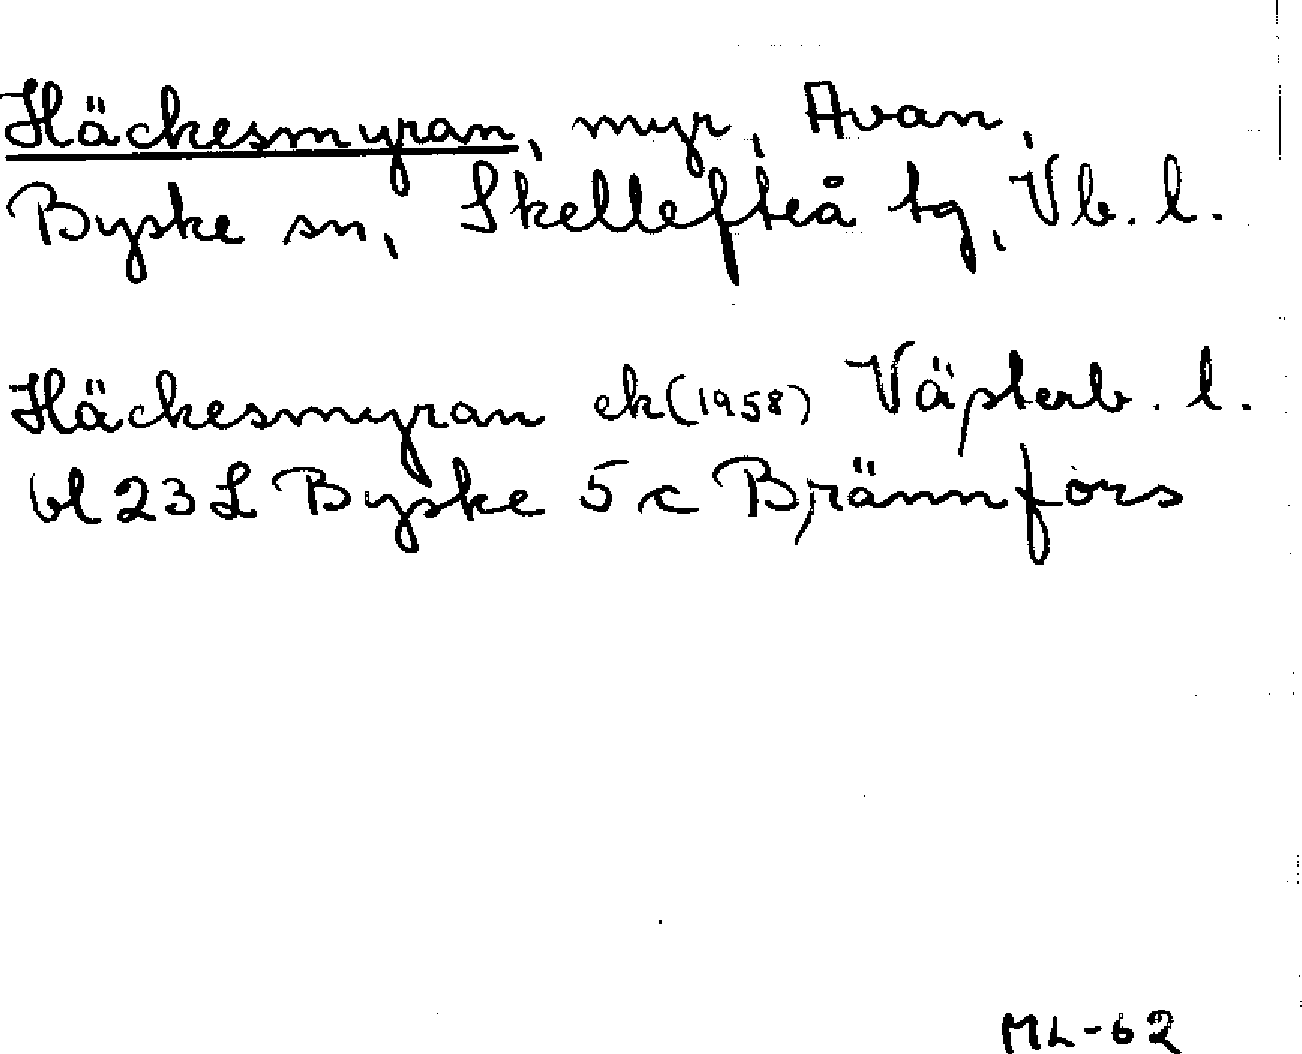 Häckesmyran, myr, Avan,
Byske sn, Skellefteå tg, Vb. l.
Häckesmyran ek (1958) Västerb. l.
bl 23 L Byske 5 c Brännfors
ML-62